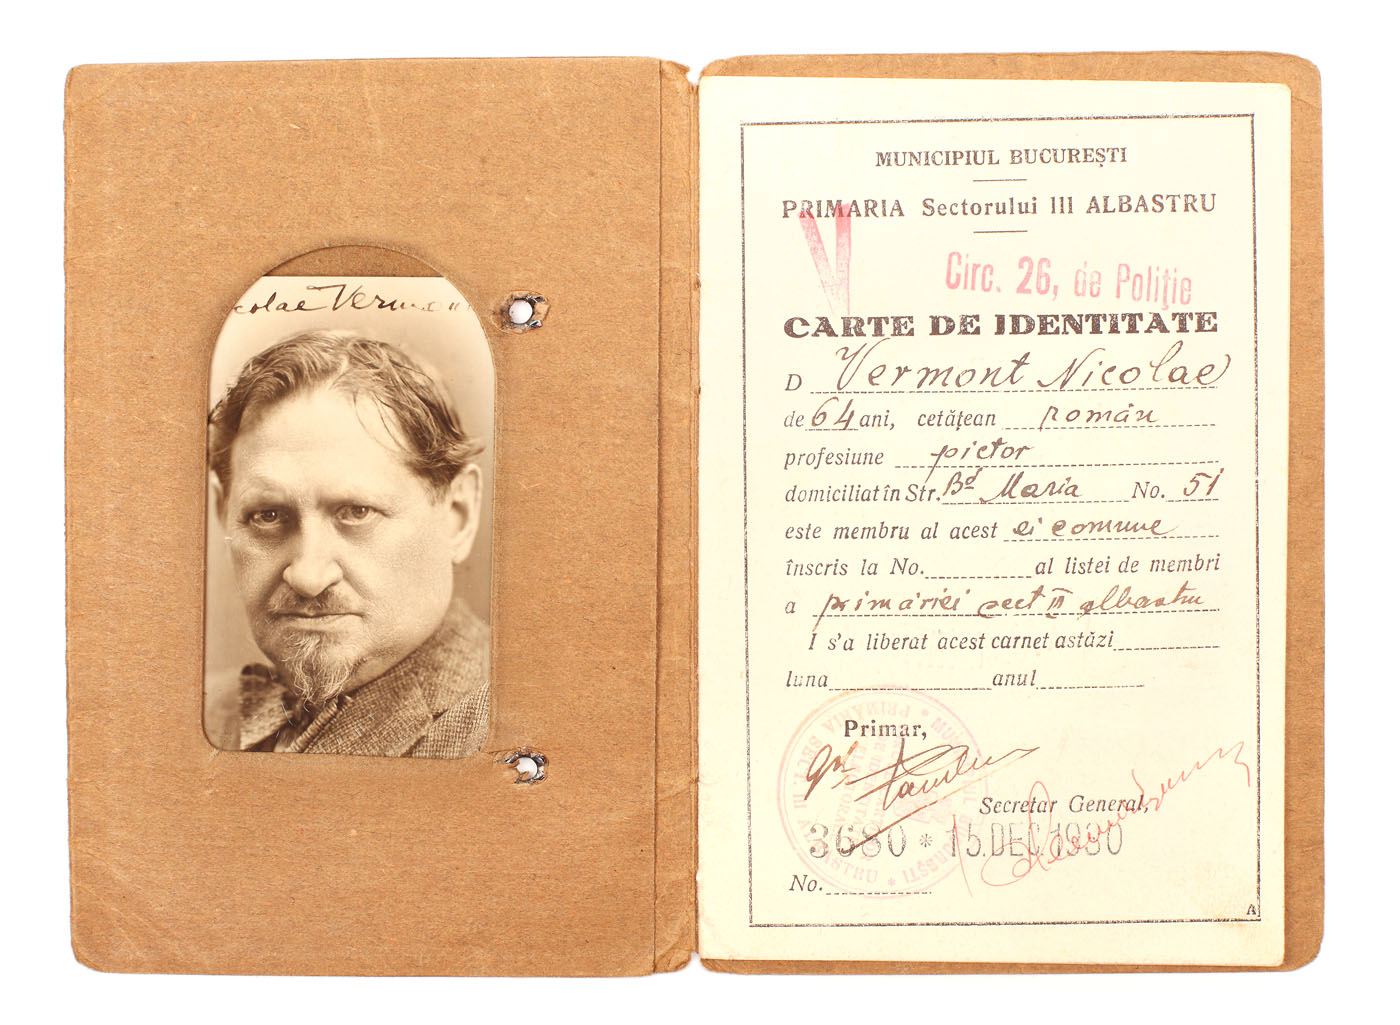 Nicolae Vermont
MUNICIPIUL BUCUREȘTI
PRIMARIA Sectorului III ALBASTRU
V
Circ. 26, de Poliție
CARTE DE IDENTITATE
D Vermont Nicolae
de 64 ani, cetățean român
profesiune pictor
domiciliat în Str. Bd Maria No. 51
este membru al acest ei comune
înscris la No. al listei de membri
a primăriei sect III albastru
I s'a liberat acest carnet astăzi
luna anul
Primar,
Secretar General,
3680 * 15.DEC.1930
No.
A